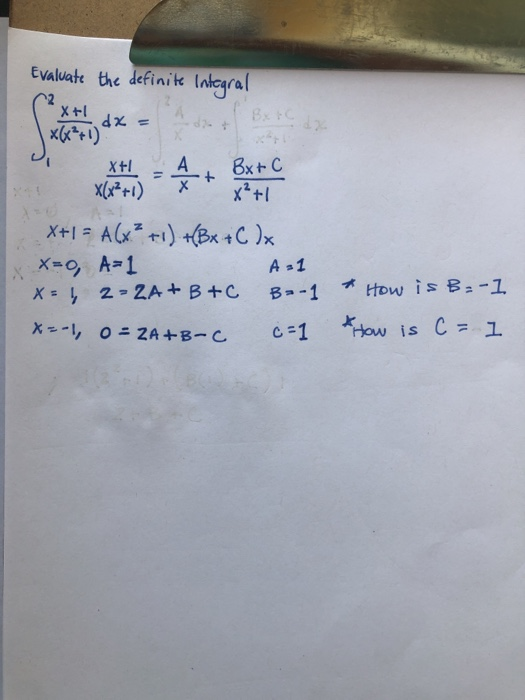 Evaluate the definite Integral
∫₁² (x+1)/(x(x²+1)) dx =
(x+1)/(x(x²+1)) = A/x + (Bx+C)/(x²+1)
x+1 = A(x²+1)+(Bx+C)x
x=0, A=1 A=1
x=1, 2=2A+B+C B=-1 * How is B=-1
x=-1, 0=2A+B-C C=1 * How is C=1